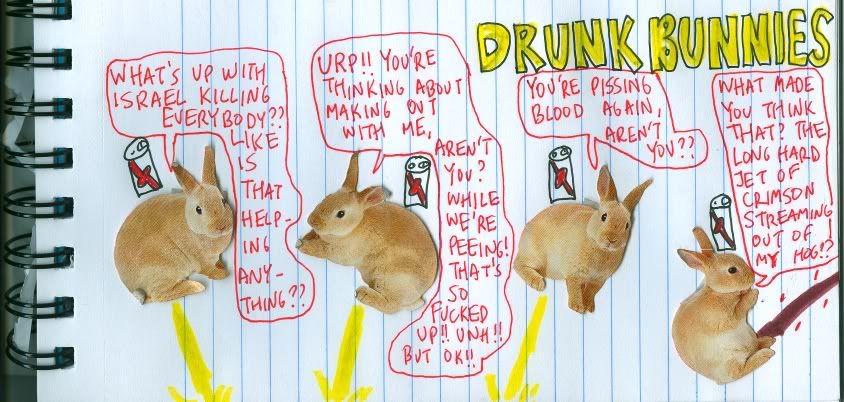 DRUNK BUNNIES
WHAT'S UP WITH
ISRAEL KILLING
EVERYBODY??
LIKE
IS
THAT
HELP-
ING
ANY-
THING??
URP!! YOU'RE
THINKING ABOUT
MAKING OUT
WITH ME,
AREN'T
YOU?
WHILE
WE'RE
PEEING!
THAT'S
SO
FUCKED
UP!! UNH!!
BUT OK!!
YOU'RE PISSING
BLOOD AGAIN,
AREN'T
YOU??
WHAT MADE
YOU THINK
THAT? THE
LONG HARD
JET OF
CRIMSON
STREAMING
OUT OF
MY HOG!?